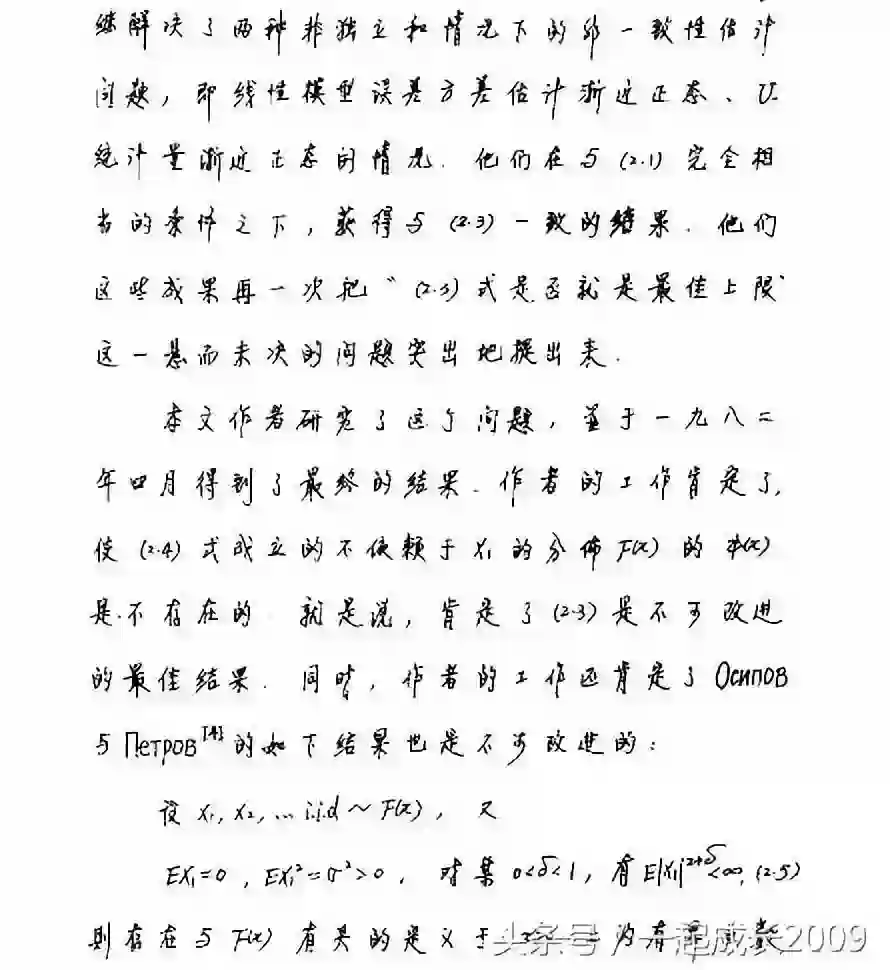 继解决了两种非独立和情况下的非一致性估计
问题，即线性模型误差方差估计渐近正态、U
统计量渐近正态的情况．他们在与(2.1)完全相
当的条件之下，获得与(2.3)一致的结果．他们
这些成果再一次把“(2.3)式是否就是最佳上限”
这一悬而未决的问题突出地提出来．
本文作者研究了这个问题，并于一九八二
年四月得到了最终的结果．作者的工作肯定了，
使(2.4)式成立的不依赖于X₁的分佈F(x)的ψ(x)
是不存在的．就是说，肯定了(2.3)是不可改进
的最佳结果．同时，作者的工作还肯定了Осипов
与Петров[4]的如下结果也是不可改进的：
设X₁, X₂, … i.i.d ~ F(x)，又
EX₁=0，EX₁²=σ²>0，对某0<δ<1，有E|X₁|²⁺ᵟ<∞, (2.5)
则存在与F(x)有关的定义于 的有界函数
头条号／一起成长2009